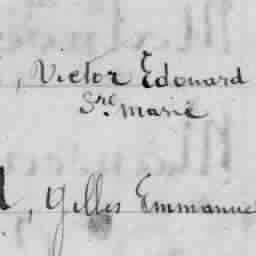 , Victor Edouard
Sne. marie
, Gilles Emmanue